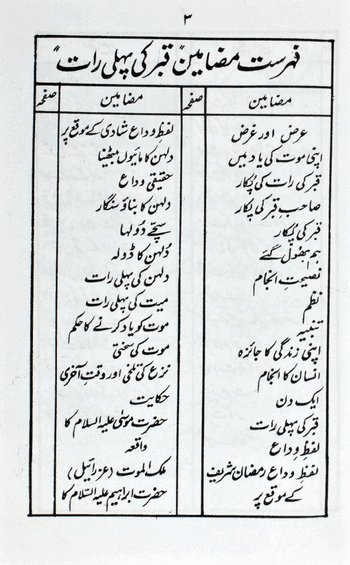 ۳
فہرست مضامین "قبر کی پہلی رات"
مضامین
صفحہ
عرض اور غرض
اپنی موت کی یاد میں
قبر کی رات کی پُکار
صاحبِ قبر کی پُکار
قبر کی پُکار
ہم بھول گئے
نصیحت انجام
نظم
تنبیہ
اپنی زندگی کا جائزہ
انسان کا انجام
ایک دن
قبر کی پہلی رات
لفظِ وداع
لفظِ وداع رمضان شریف
کے موقع پر
مضامین
صفحہ
لفظِ وداع شادی کے موقع پر
دلہن کا مائیوں بیٹھنا
حقیقی وداع
دلہن کا بناؤ سنگار
سچے دُولہا
دُلہن کا ڈولہ
دلہن کی پہلی رات
میت کی پہلی رات
موت کو یاد کرنے کا حکم
موت کی سختی
نزع کی تلخی اور وقتِ آخری
حکایت
حضرت موسیٰ علیہ السلام کا
واقعہ
ملک الموت (عزرائیل)
حضرت ابراہیم علیہ السّلام کا